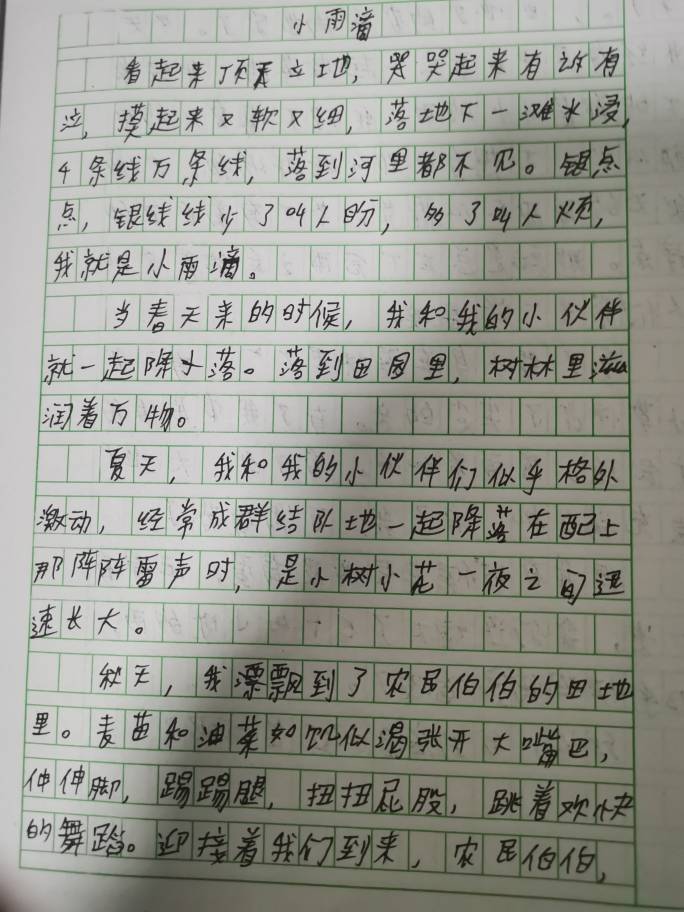 小雨滴
看起来顶天立地，哭哭起来有许有
泣，摸起来又软又细，落地下一滩水浸，
4条线万条线，落到河里都不见。银点
点，银线线少了叫人盼，的了叫人烦，
我就是小雨滴。
当春天来的时候，我和我的小伙伴
就一起降落。落到田园里，树林里滋
润着万物。
夏天，我和我的小伙伴们似乎格外
激动，经常成群结队地一起降落在配上
那阵阵雷声时，是小树小花一夜之间迅
速长大。
秋天，我漂飘到了农民伯伯的田地
里。麦苗和油菜如饥似渴张开大嘴巴，
伸伸脚，踢踢腿，扭扭屁股，跳着欢快
的舞蹈。迎接着我们到来，农民伯伯，